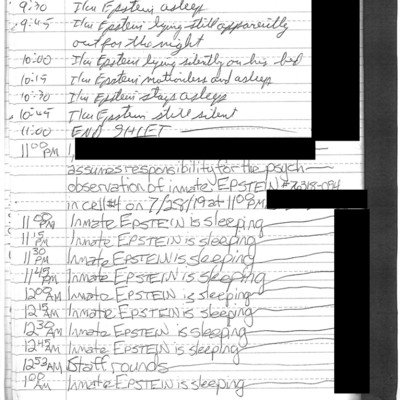 9:30 I/m Epstein asleep
9:45 I/m Epstein lying still apparently
out for the night
10:00 I/m Epstein lying silently on his bed
10:15 I/m Epstein motionless and asleep
10:30 I/m Epstein stays asleep
10:45 I/m Epstein still silent
11:00 END SHEET
11:00 PM I,
assumes responsibility for the psych
observation of inmate EPSTEIN
in cell #4 on 7/28/19 at 11:00 PM
11:00 PM Inmate EPSTEIN is sleeping
11:15 PM Inmate EPSTEIN is sleeping
11:30 PM Inmate EPSTEIN is sleeping
11:45 PM Inmate EPSTEIN is sleeping
12:00 AM Inmate EPSTEIN is sleeping
12:15 AM Inmate EPSTEIN is sleeping
12:30 AM Inmate EPSTEIN is sleeping
12:45 AM Inmate EPSTEIN is sleeping
12:53 AM Staff rounds
1:00 AM Inmate EPSTEIN is sleeping